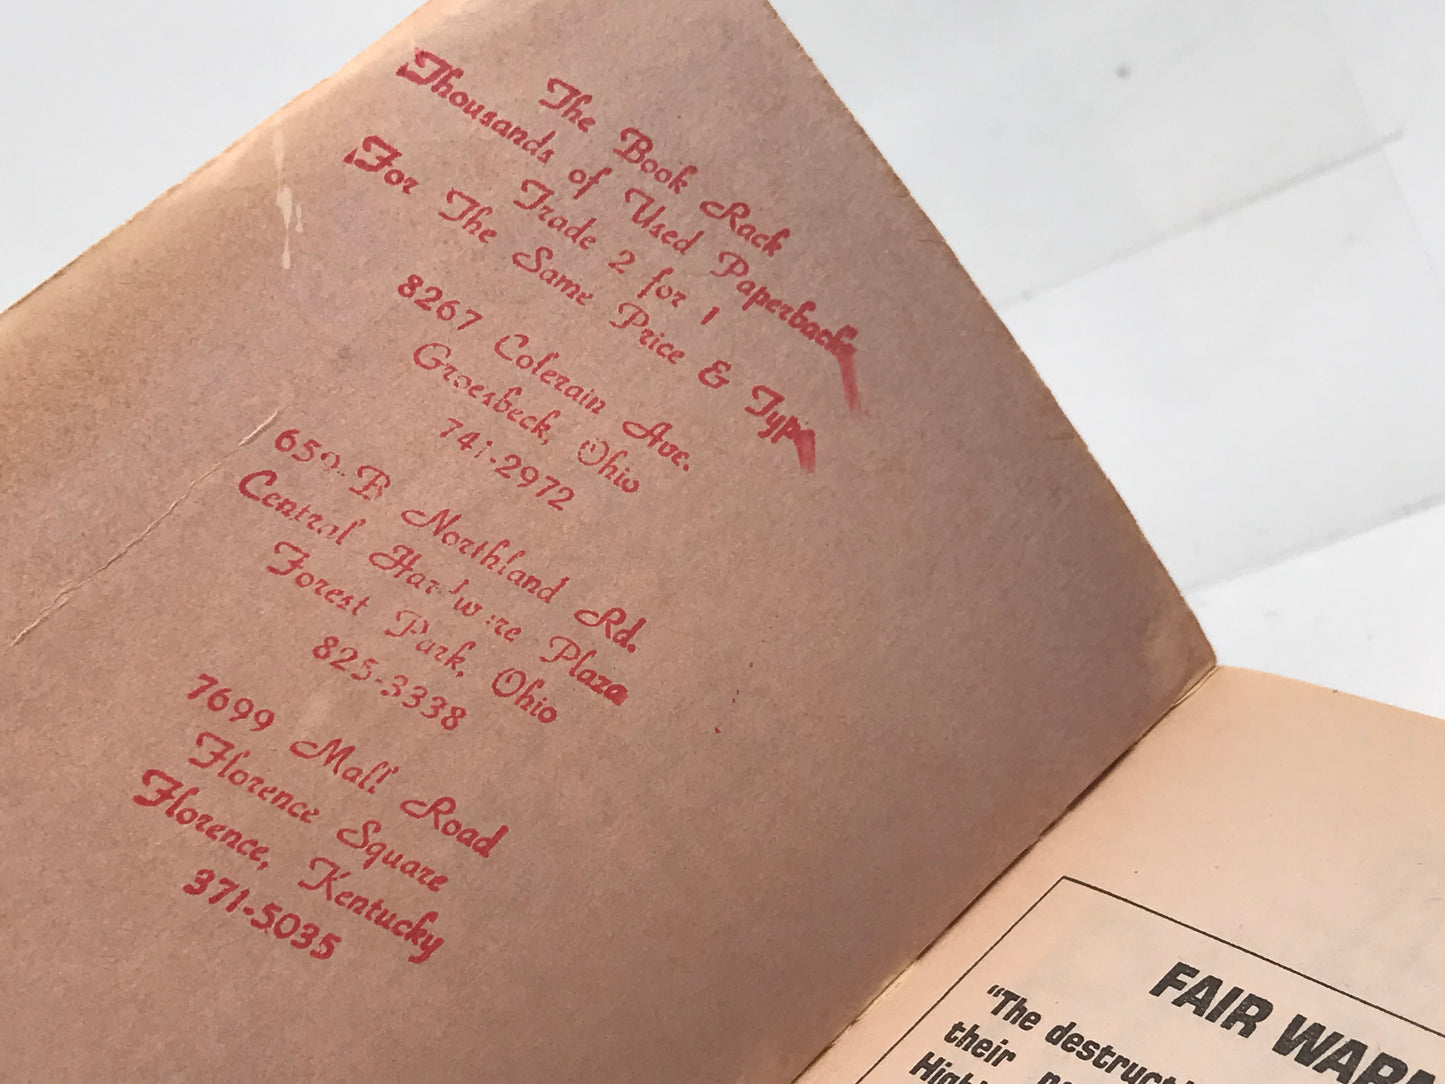 The Book Rack
Thousands of Used Paperbacks
Trade 2 for 1
For The Same Price & Type
8267 Colerain Ave.
Groesbeck, Ohio
741-2972
Northland Rd.
Central Hardware Plaza
Forest Park, Ohio
825-3338
7699 Mall Road
Florence Square
Florence, Kentucky
371-5035
FAIR
"The
their